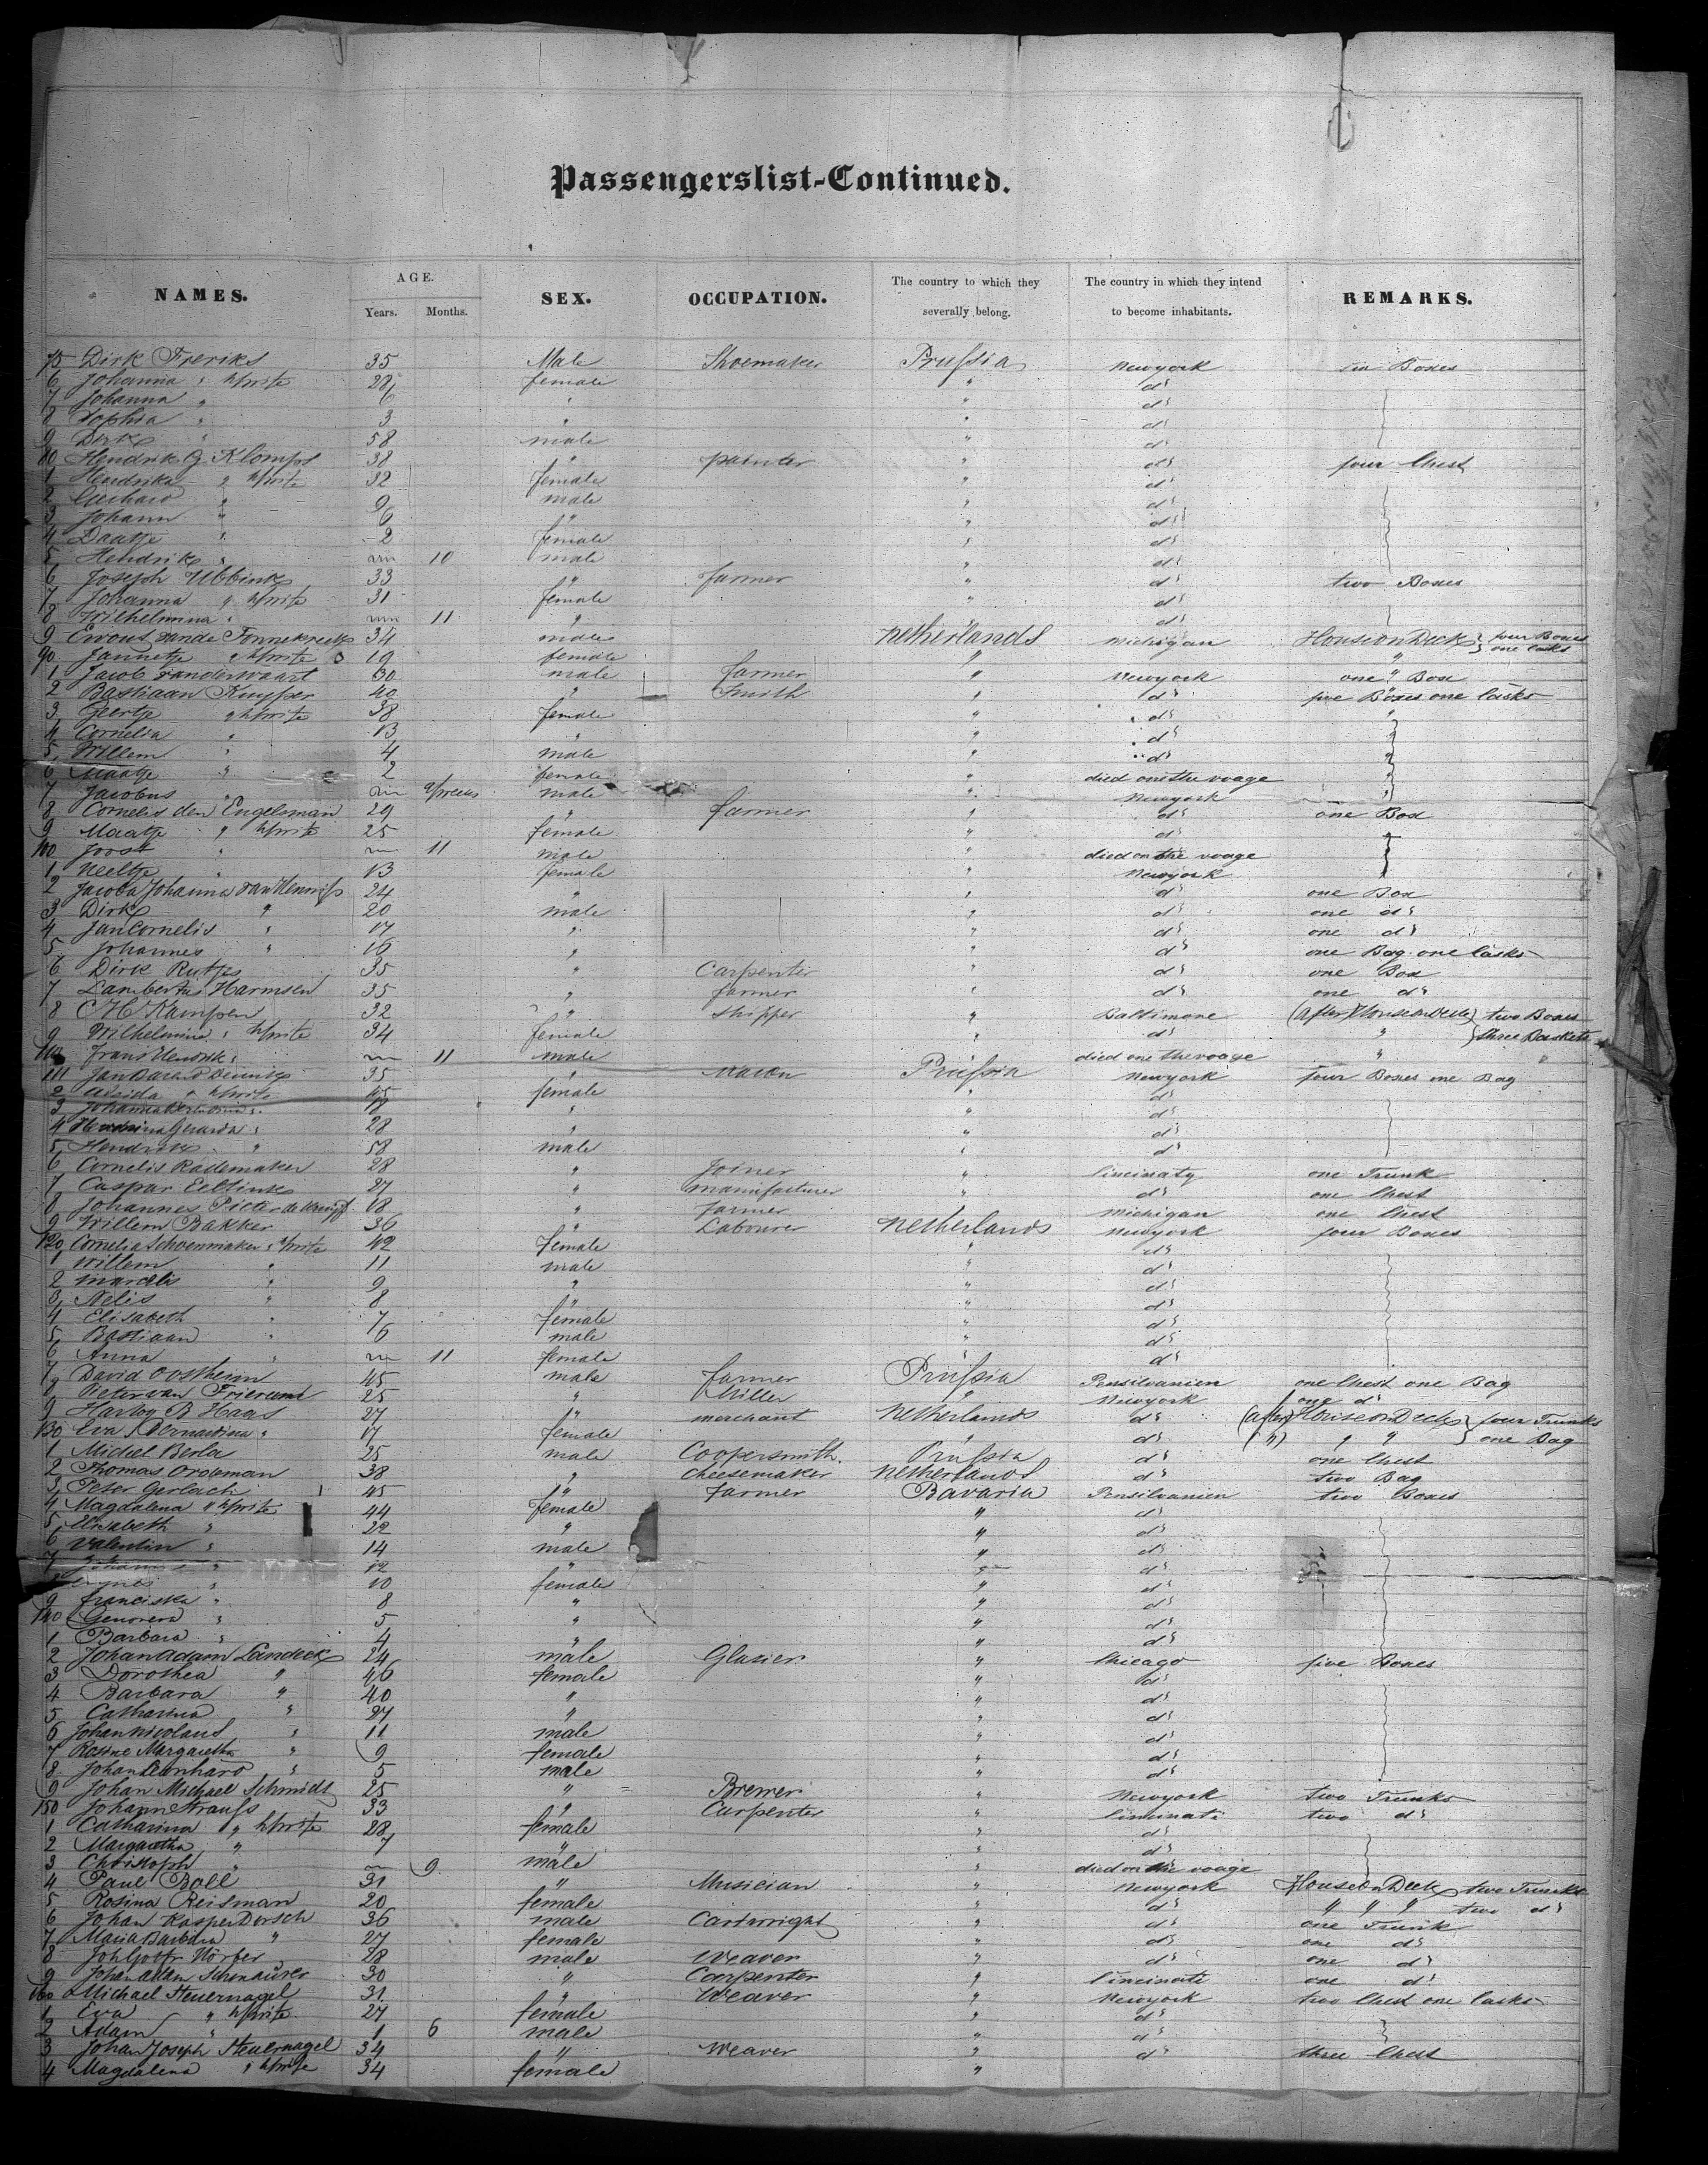 Passengerslist-Continued.
NAMES. AGE. Years. Months. SEX. OCCUPATION. The country to which they severally belong. The country in which they intend to become inhabitants. REMARKS.
75 Dirk Freriks 35 Male Shoemaker Prussia Newyork six Boxes
6 Johanna " h/wife 28 female " do
7 Johanna " 6 " " do
8 Sophia " 3 " " do
9 Dirk " 58 male " do
80 Hendrik G. Klomps 38 " painter " do four Chest
1 Hendrika " h/wife 32 female " do
2 Gerhard " 9 male " do
3 Johann " 6 " " do
4 Daatje " 2 female " do
5 Hendrik " 10 male " do
6 Joseph Ubbink 33 " farmer " do two Boxes
7 Johanna " h/wife 31 female " do
8 Wilhelmina " 11 " " do
9 Evout vande 34 male Netherlands Michigan House on Deck four Boxes
90 Jannetje " h/wife 19 female " " one Casks
1 Jacob vanderwaart 30 male farmer " Newyork one Box
2 Bastiaan Kuyper 40 " Smith " do five Boxes one Casks
3 Geertje " h/wife 38 female " do "
4 Cornelia " 13 " " do "
5 Willem " 4 male " do "
6 Maatje " 2 female " died one the voage "
7 Jacobus " male " Newyork "
8 Cornelis den Engelsman 29 " farmer " do one Box
9 Maatje " h/wife 25 female " do
100 Joost " 11 male " died on the voage
1 Neeltje " 13 female " Newyork
2 Jacoba Johanna van 24 " " do one Box
3 Dirk " 20 male " do one do
4 Jan Cornelis " 17 " " do one do
5 Johannes " 16 " " do one Bag one Casks
6 Dirk Rutjes 35 " Carpenter " do one Box
7 Lambertus Harmsen 35 " farmer " do one do
8 C H Kampen 32 " shipper " Baltimore (after) House on Deck two Boxes
9 Wilhelmina " h/wife 34 female " do " three Baskets
110 Frans Hendrik " 11 male " died one the voage "
111 Jan Barend 35 " Mason Prussia Newyork four Boxes one Bag
2 Aleida " h/wife 45 female " do
3 Johanna " " " do
4 Hermina Gerarda " 28 " " do
5 Hendrik " 58 male " do
6 Cornelis Rademaker 28 " Joiner " Cincinaty one Trunk
7 Caspar Eebtink 27 " manufacturer " do one Chest
8 Johannes Pieter 18 " Farmer " Michigan one Chest
9 Willem Bakker 36 " Labourer Netherlands Newyork four Boxes
120 Cornelia Schoenmaker " h/wife 42 female " do
1 Willem " 11 male " do
2 Marcelis " 9 " " do
3 Nelis " 8 " " do
4 Elisabeth " 7 female " do
5 Bastiaan " 6 male " do
6 Anna " 11 female " do
7 David Oostheim 45 male farmer Prussia Pensilvanien one Chest one Bag
8 Pieter van 25 " Miller " Newyork one do
9 Hartog B Haas 27 " merchant Netherlands do (after) House on Deck four Trunks
130 Eva Bernardina " 17 female " do (") " " one Bag
1 Michel Berla 25 male Coopersmith. Prussia do one Chest
2 Thomas Ordeman 38 " cheesemaker Netherlands do two Bag
3 Peter Gerlach 45 " Farmer Bavaria Pensilvanien two Boxes
4 Magdalena " h/wife 44 female " do
5 Elisabeth " 22 " " do
6 Valentin " 14 male " do
7 " 12 " " do
8 Agnes " 10 female " do
9 Franciska " 8 " " do
140 Genovera " 5 " " do
1 Barbara " 4 " " do
2 Johan Adam Landeck 24 male Glasier " Chicago five Boxes
3 Dorothea " 46 female " do
4 Barbara " 40 " " do
5 Catharina " 27 " " do
6 Johan Nicolaus " 11 male " do
7 Rosine Margaretha " 9 female " do
8 Johan Leonhard " 5 male " do
9 Johan Michael Schmidt 25 " Brewer " Newyork two Trunks
150 Johann Strauss 33 " Carpenter " Cincinati two do
1 Catharina " h/wife 28 female " do
2 Margaretha " 7 " " do
3 Christoph " 9 male " died on the voage
4 Paul Boll 31 " Musician " Newyork House on Deck two Trunks
5 Rosina Reisman 20 female " do " " " two do
6 Johan Kasper Dorsch 36 male Cartwright " do one Trunk
7 Maria Barbara " 27 female " do one do
8 Joh Gottfr Nörper 28 male Weaver " do one do
9 Johan Adam 30 " Carpenter " Cincinati one do
160 Michael Steuernagel 31 " Weaver " Newyork two Chest one Casks
1 Eva " h/wife 27 female " do
2 Adam " 1 6 male " do
3 Johan Joseph Steuernagel 34 " Weaver " do three Chest
4 Magdalena " h/wife 34 female "